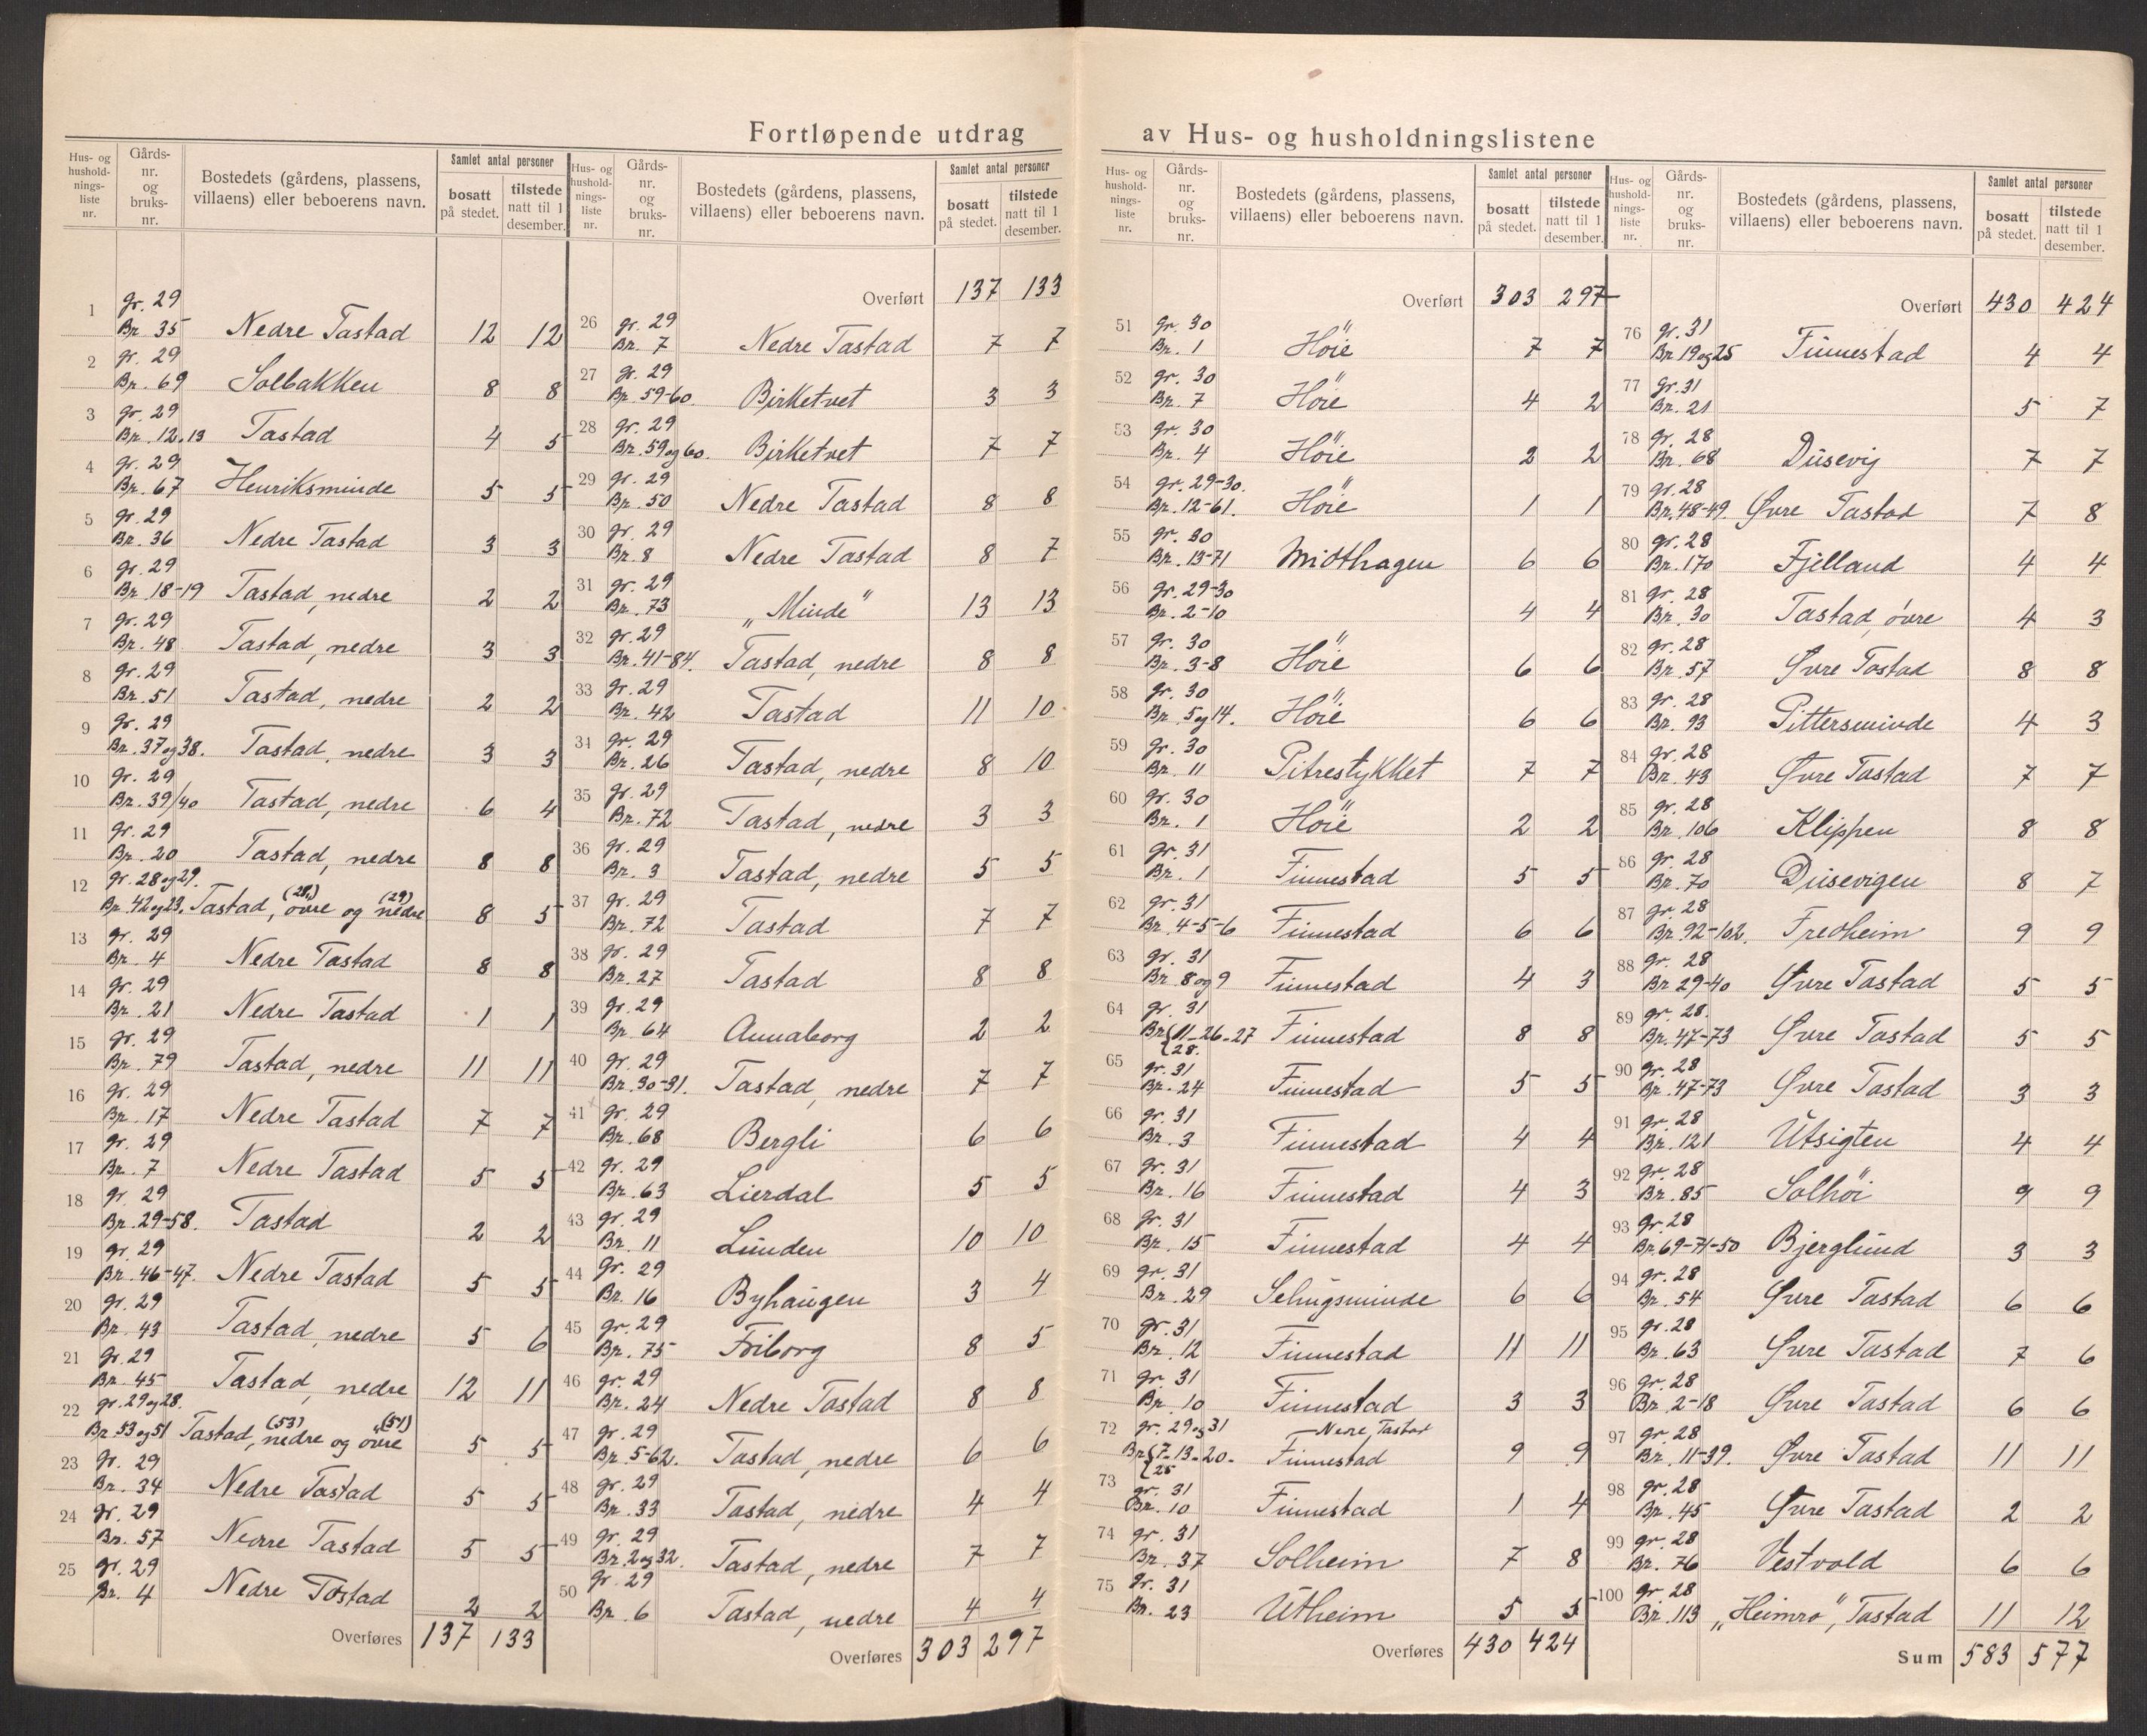 Fortløpende utdrag av Hus- og husholdningslistene
Hus- og husholdnings-liste nr. | Gårds-nr. og bruks-nr. | Bostedets (gårdens, plassens, villaens) eller beboerens navn. | Samlet antal personer | bosatt på stedet. | tilstede natt til 1 desember.
1 gr. 29 Br. 35 Nedre Tastad 12 12
2 gr. 29 Br. 69 Solbakken 8 8
3 gr. 29 Br. 12.13 Tastad 4 5
4 gr. 29 Br. 67 Henriksminde 5 5
5 gr. 29 Br. 36 Nedre Tastad 3 3
6 gr. 29 Br. 18-19 Tastad, nedre 2 2
7 gr. 29 Br. 48 Tastad, nedre 3 3
8 gr. 29 Br. 51 Tastad, nedre 2 2
9 gr. 29 Br. 37 og 38. Tastad, nedre 3 3
10 gr. 29 Br. 39/40 Tastad, nedre 6 4
11 gr. 29 Br. 20 Tastad, nedre 8 8
12 gr. 28 og 29. Br. 42 og 23. Tastad, øvre (28.) og nedre (29) 8 5
13 gr. 29 Br. 4 Nedre Tastad 8 8
14 gr. 29 Br. 21 Nedre Tastad 1 1
15 gr. 29 Br. 79 Tastad, nedre 11 11
16 gr. 29 Br. 17 Nedre Tastad 7 7
17 gr. 29 Br. 7 Nedre Tastad 5 5
18 gr. 29 Br. 29-58. Tastad 2 2
19 gr. 29 Br. 46-47. Nedre Tastad 5 5
20 gr. 29 Br. 43 Tastad, nedre 5 6
21 gr. 29 Br. 45 Tastad, nedre 12 11
22 gr. 29 og 28. Br. 53 og 51 Tastad, nedre (53) og øvre (51) 5 5
23 gr. 29 Br. 34 Nedre Tastad 5 5
24 gr. 29 Br. 57 Nedre Tastad 5 5
25 gr. 29 Br. 4 Nedre Tastad 2 2
Overføres 137 133
Hus- og husholdnings-liste nr. | Gårds-nr. og bruks-nr. | Bostedets (gårdens, plassens, villaens) eller beboerens navn. | Samlet antal personer | bosatt på stedet. | tilstede natt til 1 desember.
Overført 137 133
26 gr. 29 Br. 7 Nedre Tastad 7 7
27 gr. 29 Br. 59-60. Birketvet 3 3
28 gr. 29 Br. 59 og 60. Birketvet 7 7
29 gr. 29 Br. 50 Nedre Tastad 8 8
30 gr. 29 Br. 8 Nedre Tastad 8 7
31 gr. 29 Br. 73 „Minde" 13 13
32 gr. 29 Br. 41-84. Tastad, nedre 8 8
33 gr. 29 Br. 42 Tastad 11 10
34 gr. 29 Br. 26 Tastad, nedre 8 10
35 gr. 29 Br. 72 Tastad, nedre 3 3
36 gr. 29 Br. 3 Tastad, nedre 5 5
37 gr. 29 Br. 72 Tastad 7 7
38 gr. 29 Br. 27 Tastad 8 8
39 gr. 29 Br. 64 Annaborg 2 2
40 gr. 29 Br. 30-31. Tastad, nedre 7 7
41 gr. 29 Br. 68 Bergli 6 6
42 gr. 29 Br. 63 Lierdal 5 5
43 gr. 29 Br. 11 Lunden 10 10
44 gr. 29 Br. 16 Byhaugen 3 4
45 gr. 29 Br. 75 Friborg 8 5
46 gr. 29 Br. 24 Nedre Tastad 8 8
47 gr. 29 Br. 5-62. Tastad, nedre 6 6
48 gr. 29 Br. 33 Tastad, nedre 4 4
49 gr. 29 Br. 2 og 32. Tastad, nedre 7 7
50 gr. 29 Br. 6 Tastad, nedre 4 4
Overføres 303 297
Hus- og husholdnings-liste nr. | Gårds-nr. og bruks-nr. | Bostedets (gårdens, plassens, villaens) eller beboerens navn. | Samlet antal personer | bosatt på stedet. | tilstede natt til 1 desember.
Overført 303 297
51 gr. 30 Br. 1 Höie 7 7
52 gr. 30 Br. 7 Höie 4 2
53 gr. 30 Br. 4 Höie 2 2
54 gr. 29-30. Br. 12-61. Höie 1 1
55 gr. 30 Br. 13-71 Midthagen 6 6
56 gr. 29-30 Br. 2-10 4 4
57 gr. 30 Br. 3-8 Höie 6 6
58 gr. 30 Br. 5 og 14. Höie 6 6
59 gr. 30 Br. 11 Pitrestykket 7 7
60 gr. 30 Br. 1 Höie 2 2
61 gr. 31 Br. 1 Finnestad 5 5
62 gr. 31 Br. 4-5-6 Finnestad 6 6
63 gr. 31 Br. 8 og 9 Finnestad 4 3
64 gr. 31 Br. 11-26-27 28. Finnestad 8 8
65 gr. 31 Br. 24 Finnestad 5 5
66 gr. 31 Br. 3 Finnestad 4 4
67 gr. 31 Br. 16 Finnestad 4 3
68 gr. 31 Br. 15 Finnestad 4 4
69 gr. 31 Br. 29 Selugsminde 6 6
70 gr. 31 Br. 12 Finnestad 11 11
71 gr. 31 Br. 10 Finnestad 3 3
72 gr. 29 og 31 Br. 7-13-20- 25 Nedre, Tastad Finnestad 9 9
73 gr. 31 Br. 10 Finnestad 1 4
74 gr. 31 Br. 37 Solheim 7 8
75 gr. 31 Br. 23 Utheim 5 5
Overføres 430 424
Hus- og husholdnings-liste nr. | Gårds-nr. og bruks-nr. | Bostedets (gårdens, plassens, villaens) eller beboerens navn. | Samlet antal personer | bosatt på stedet. | tilstede natt til 1 desember.
Overført 430 424
76 gr. 31 Br. 19 og 25 Finnestad 4 4
77 gr. 31 Br. 21 5 7
78 gr. 28 Br. 68 Dusevig 7 7
79 gr. 28 Br. 48-49. Øvre Tastad 7 8
80 gr. 28 Br. 170 Fjelland 4 4
81 gr. 28 Br. 30 Tastad, øvre 4 3
82 gr. 28 Br. 57 Øvre Tastad 8 8
83 gr. 28 Br. 93 Pittersminde 4 3
84 gr. 28 Br. 43 Øvre Tastad 7 7
85 gr. 28 Br. 106 Klippen 8 8
86 gr. 28 Br. 70 Dusevigen 8 7
87 gr. 28 Br. 92-102. Fredheim 9 9
88 gr. 28 Br. 29-40 Øvre Tastad 5 5
89 gr. 28. Br. 47-73 Øvre Tastad 5 5
90 gr. 28 Br. 47-73 Øvre Tastad 3 3
91 gr. 28 Br. 121 Utsigten 4 4
92 gr. 28 Br. 85 Solhöi 9 9
93 gr. 28 Br. 69-71-50 Bjerglund 3 3
94 gr. 28 Br. 54 Øvre Tastad 6 6
95 gr. 28 Br. 63 Øvre Tastad 7 6
96 gr. 28 Br. 2-18 Øvre Tastad 6 6
97 gr. 28 Br. 11-39. Øvre Tastad 11 11
98 gr. 28 Br. 45 Øvre Tastad 2 2
99 gr. 28 Br. 76 Vestvold 6 6
100 gr. 28 Br. 113 „Heimro", Tastad 11 12
Sum 583 577